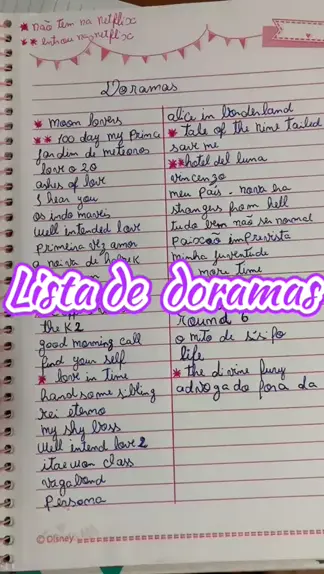 * não tem na netflix
** entrou na netflix
Doramas
* moon lovers
** 100 day my Prince
jardim de meteoros
love o 20
ashes of love
I hear you
os indomaveis
Well intended love
primeira vez amor
a noiva de
Lista de doramas
the K2
good morning call
find your self
* love in time
handsome sibling
rei eterno
my shy boss
Well intend love 2
itaewon class
vagabond
persona
alice in borderland
* tale of the nine tailed
save me
**hotel del luna
vincenzo
meu país. nova era
strangers from hell
tudo bem não ser normal
paixão imprevista
minha juventude
more time
round 6
o mito de sísifo
life
* the divine fury
advogado fora da
©Disney